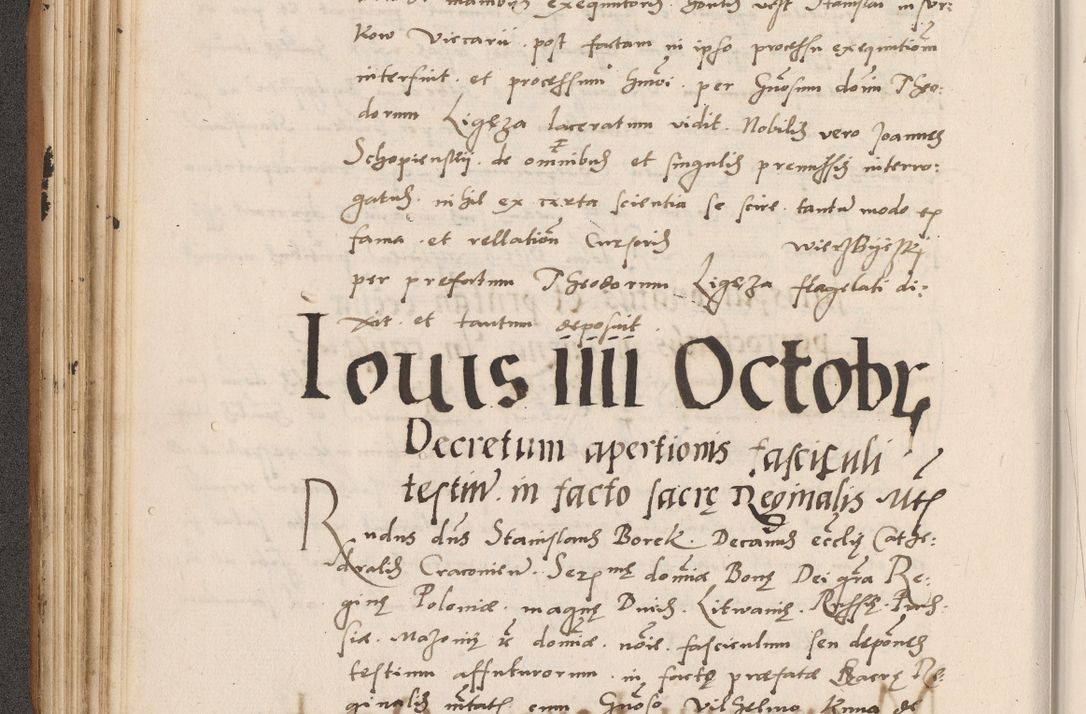 kow Viccarii post factam in ipso processu exequutiom
interfuit. et processum hmoi. per Gnosum dom Theo:
dorum Ligęza laceratum vidit. Nobilis vero Joannes
Schopienskii. de omnibus et singulis premissis interro:
gatus. nihil ex certa scientia se scire. tantum modo ex
fama. et rellation Cursoris Wierzbyeski
per prefatum Theodorum Ligęza flagelati di:
xit. et tantum deposuit.
Iouis iiii Octobr
Decretum apertionis fasciculi
testium. in facto sacrę Reginalis Mtis
Rndus dns Stanislaus Borek. Decanus ecclię Cathe:
dralis Cracovien. Serme domiæ Bonę Dei gra Re:
ginę Poloniæ. magnę Ducis. Litwanię. Russię. Prus:
siæ. Mazovię &c domiæ. noie. fasciculum seu depones
testium assututorum. in facto præfatæ Sacrę Re:
ginalis mtatis cum Gnoso Vilhelmo Kuna de